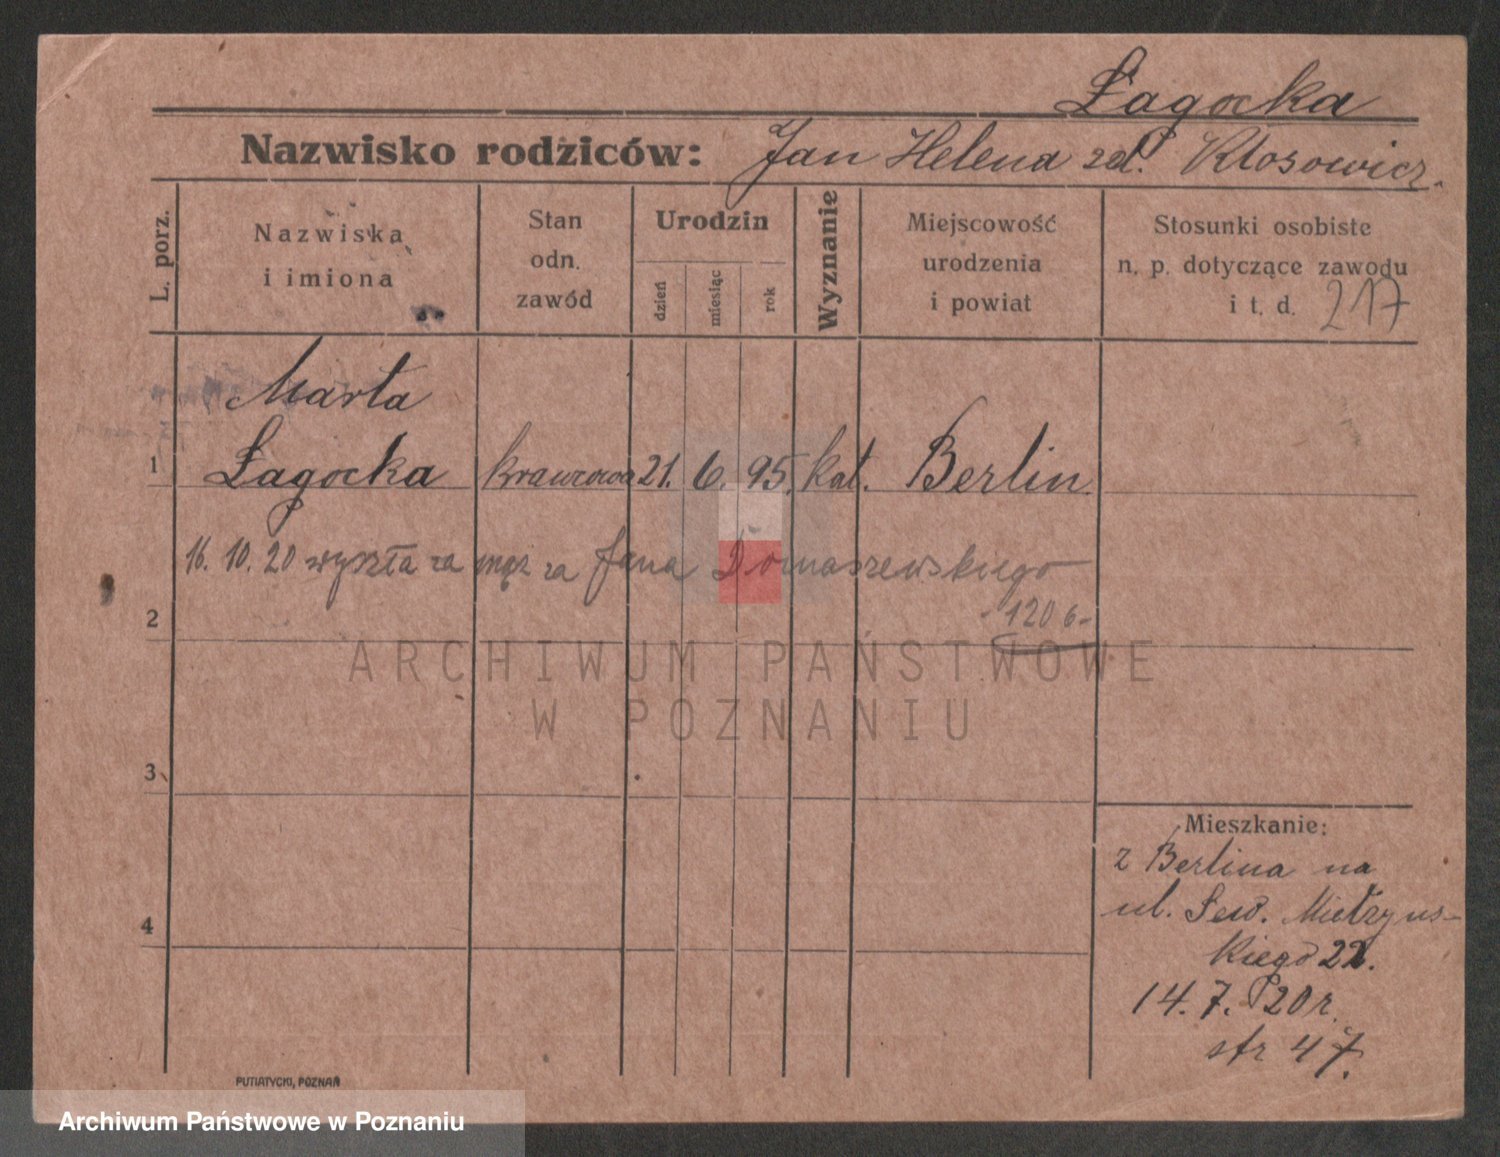 Łagocka
Nazwisko rodziców: Jan Helena zd. Kłosowicz.
L. porz.
Nazwiska
i imiona
Stan
odn.
zawód
Urodzin
dzień
miesiąc
rok
Wyznanie
Miejscowość
urodzenia
i powiat
Stosunki osobiste
n. p. dotyczące zawodu
i t. d. 217
Marta
1 Łagocka krawcowa 21. 6. 95. kat. Berlin.
16. 10. 20 wyszła za mąż za Jana Domaszewskiego
2 -1206-
ARCHIWUM PAŃSTWOWE
W POZNANIU
3
Mieszkanie:
z Berlina na
ul. Sew. Mielżyns-
4
kiego 22.
14. 7. 20 r.
str 47.
PUTIATYCKI, POZNAŃ
Archiwum Państwowe w Poznaniu